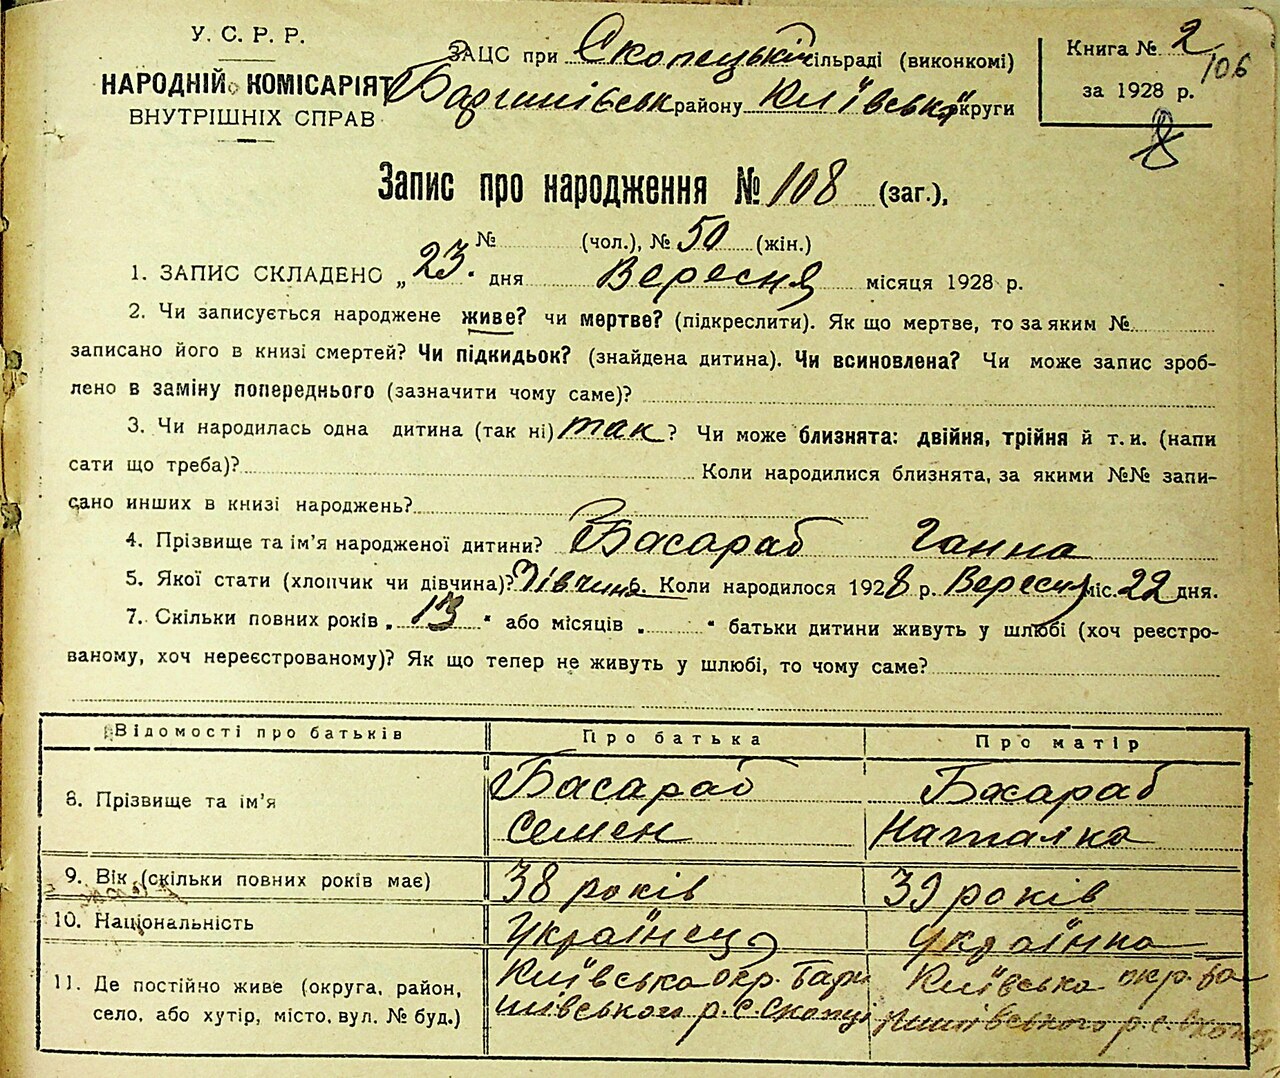 У. С. Р. Р.
НАРОДНІЙ КОМІСАРІЯТ
ВНУТРІШНІХ СПРАВ
ЗАЦС при Скопецькій сільраді (виконкомі)
Баришівськ району Київська округи
Книга № 2
106
за 1928 р.
8
Запис про народження № 108 (заг.),
№ (чол.), № 50 (жін.)
1. ЗАПИС СКЛАДЕНО „ 23. дня Вересня місяця 1928 р.
2. Чи записується народжене живе? чи мертве? (підкреслити). Як що мертве, то за яким №
записано його в книзі смертей? Чи підкидьок? (знайдена дитина). Чи всиновлена? Чи може запис зроб-
лено в заміну попереднього (зазначити чому саме)?
3. Чи народилась одна дитина (так ні) так? Чи може близнята: двійня, трійня й т. и. (напи
сати що треба)? Коли народилися близнята, за якими №№ запи-
сано инших в книзі народжень?
4. Прізвище та ім'я народженої дитини? Басараб Ганна
5. Якої стати (хлопчик чи дівчина)? Дівчина 6. Коли народилося 1928 р. Вересня міс. 22 дня.
7. Скільки повних років „ 13 " або місяців „ " батьки дитини живуть у шлюбі (хоч реєстро-
ваному, хоч нереєстрованому)? Як що тепер не живуть у шлюбі, то чому саме?
Відомості про батьків Про батька Про матір
8. Прізвище та ім'я Басараб Басараб
Семен Наталка
9. Вік (скільки повних років має) 38 років 39 років
10. Національність Українець Українка
11. Де постійно живе (округа, район, Київська окр. Бари Київська окр. Ба
село, або хутір, місто, вул. № буд.) шівського р. с. Скопці ришівського р. с. Скопці